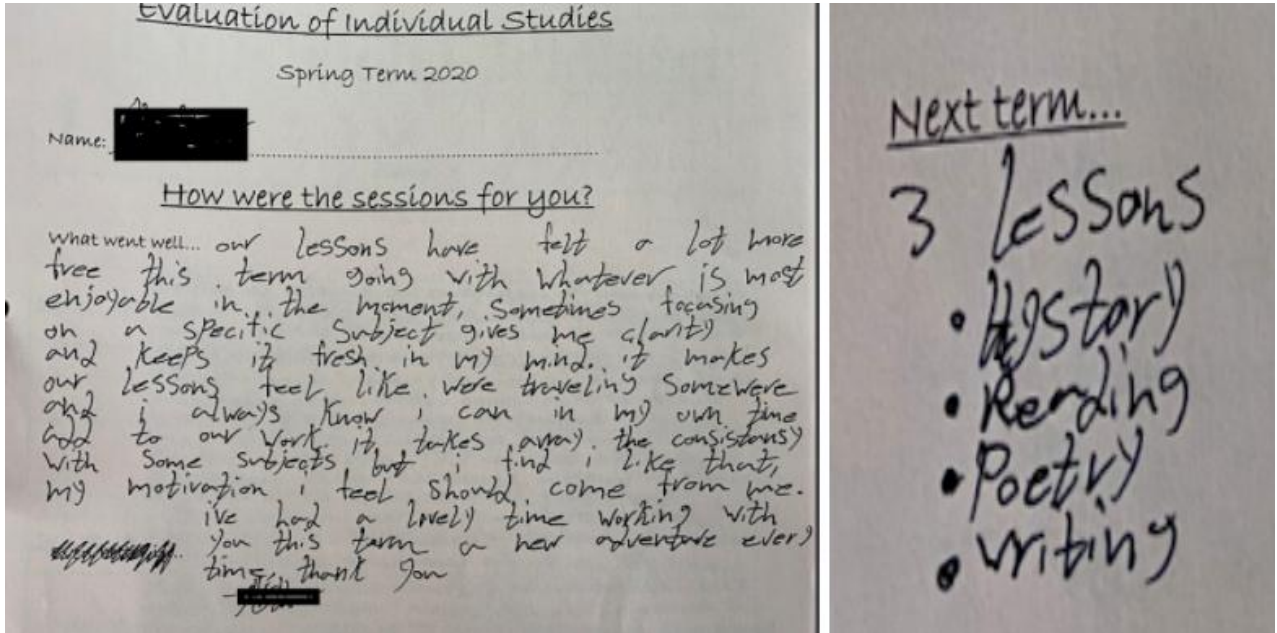 Evaluation of Individual Studies
Spring Term 2020
Name:
How were the sessions for you?
What went well... our lessons have felt a lot more
free this term going with whatever is most
enjoyable in the moment, sometimes focasing
on a specific subject gives me clarity
and keeps it fresh in my mind. it makes
our lessons feel like were traveling somewere
and i always know i can in my own time
add to our work. it takes away the consistansy
with some subjects, but i find i like that,
my motivation i feel should come from me.
ive had a lovely time working with
you this term a new adventure every
time, thank you
Next term...
3 lessons
• History
• Reading
• Poetry
• writing